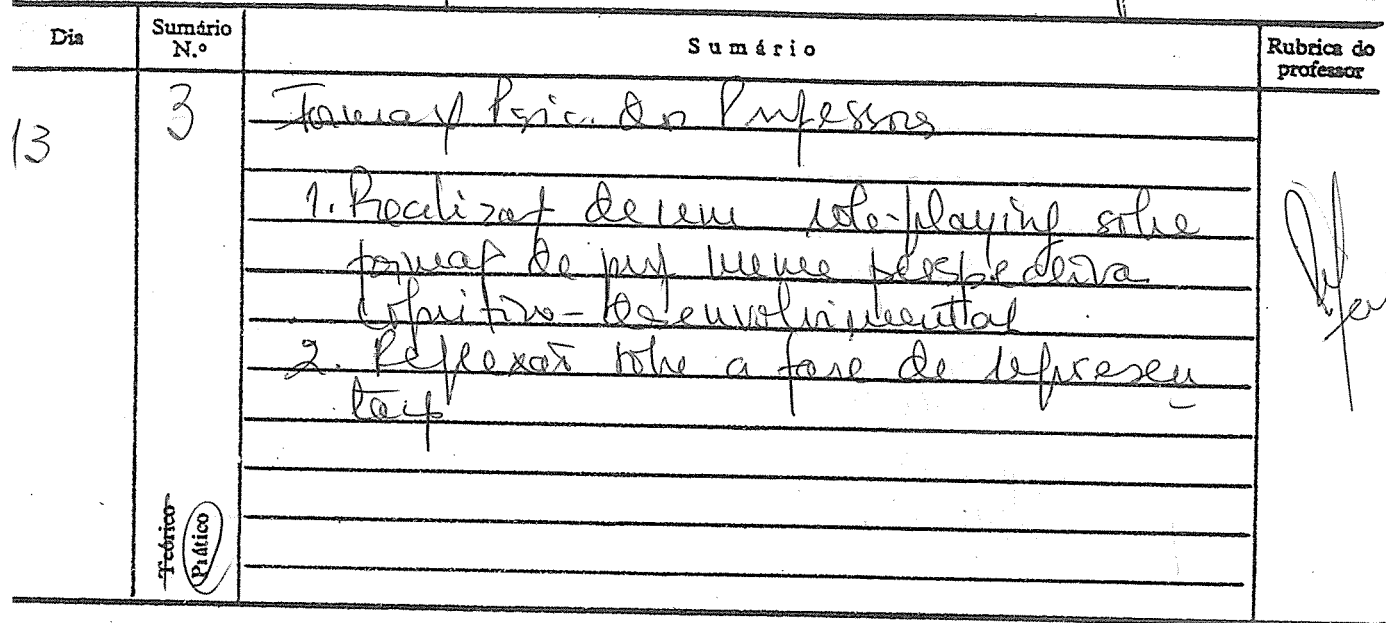 Dia
Sumário N.º
Sumário
Rubrica do professor
13
3
Formaç Psic. do Professores
1. Realizaç de um role-playing sobre
formaç de prof numa perspectiva
Cognitivo-Desenvolvimental.
2. Reflexão sobre a fase de represen
taç
Teórico
Prático